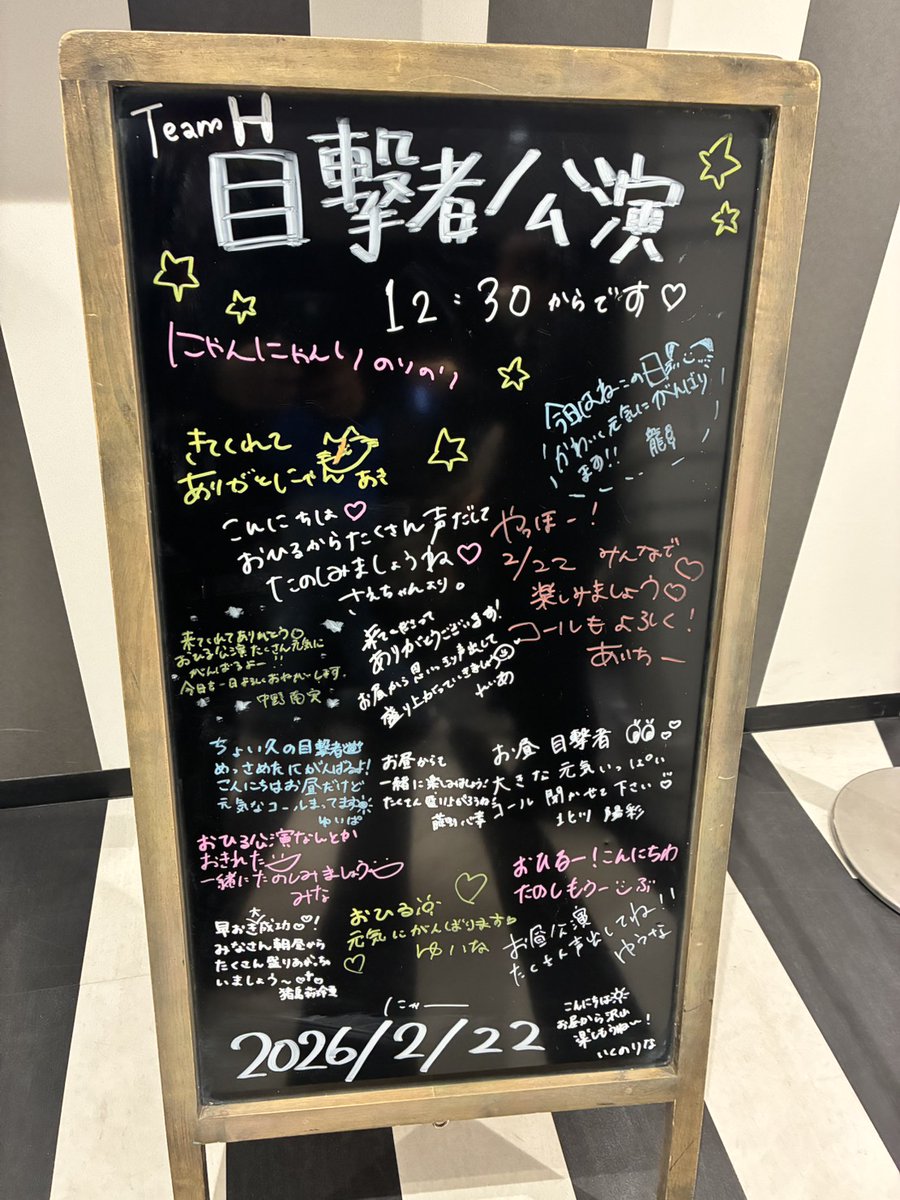 Team H
目撃者公演
12:30からです♡
にゃんにゃんりのりのり
今日はねこの日
かわいく元気にがんばり
ます!!
きてくれて
ありがとにゃん あき
こんにちは♡
おひるからたくさん声だして
たのしみましょうね♡
さえちゃんより。
やっほー!
2/22 みんなで
楽しみましょう♡
コールもよろしく!
あいちー
来てくれてありがとう♡
おひる公演たくさん元気に
がんばるよー!!
今日も一日よろしくおねがいします。
中野 南実
来てくださって
ありがとうございます!
お昼から思いっきり声出して
盛り上がっていきましょう
ちょい久の目撃者
めっさめたにがんばるよ!
こんにちはお昼だけど
元気なコールまってます
ゆいぱ
お昼からて
一緒に楽しみましょう!
たくさん盛り上がろうね
お昼 目撃者
大きな元気いっぱい
コール 聞かせて下さい♡
北川 陽彩
おひる公演なんとか
おきれた
一緒にたのしみましょう
みな
おひるー!こんにちわ
たのしもうー しぶ
早おき成功♡!
みなさん朝昼から
たくさん盛りあがっちゃ
いましょう〜
猪原絆愛
おひる
元気にがんばります
ゆいな
お昼公演
たくさん声出してね!!
ゆうな
にゃー
2026/2/22
こんにちは
お昼から沢山
楽しもうね〜!
いくのりな